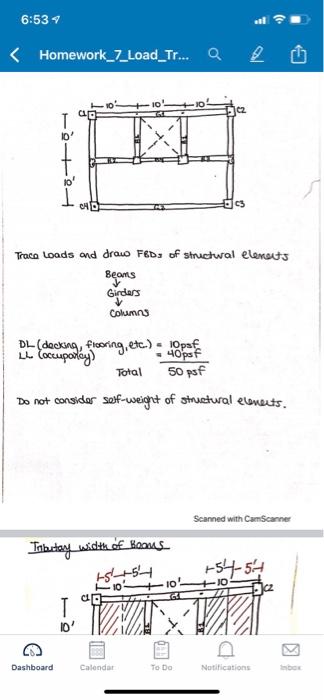 6:53
Homework_7_Load_Tr...
10' 10' 10'
C1 G1 C2
10'
B1 B1
10'
C4 G2 C3
Trace Loads and draw FBDs of structural elements
Beams
↓
Girders
↓
Columns
DL (decking, flooring, etc.) = 10psf
LL (occupancy) = 40psf
Total 50 psf
Do not consider self-weight of structural elements.
Scanned with CamScanner
Tributary width of Beams
5' 5' 5' 5'
10' 10' 10
C1 G1 C2
10'
B1 B1
Dashboard Calendar To Do Notifications Inbox